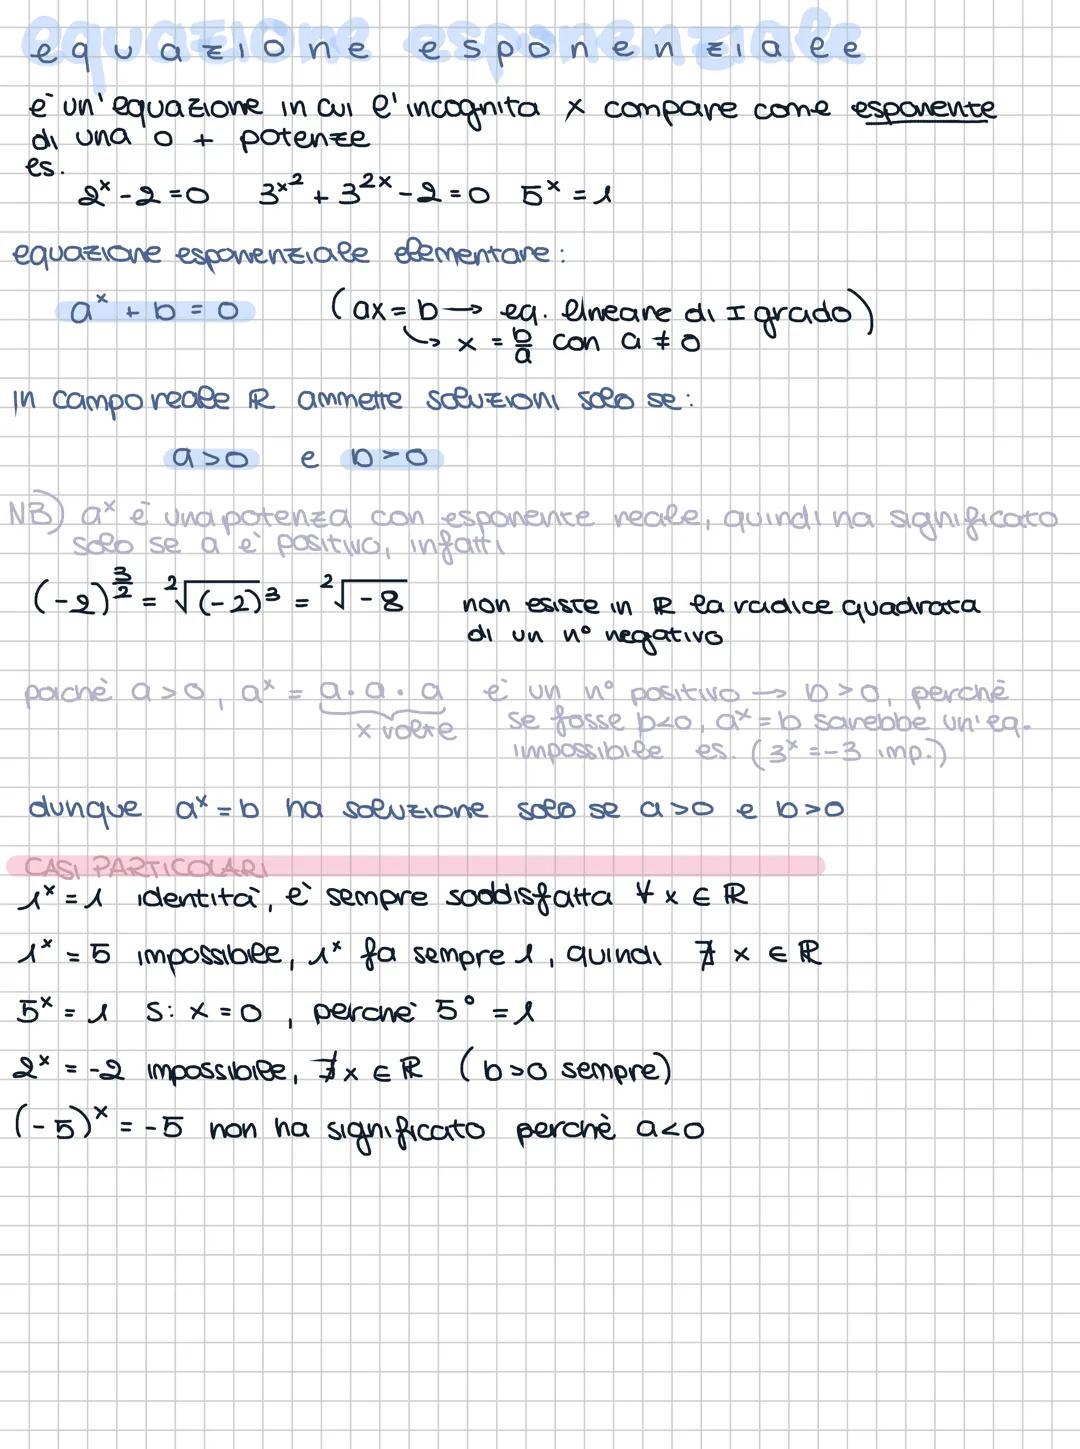 equazione esponenziale
è un'equazione in cui l'incognita x compare come esponente
di una o + potenze
es.
2ˣ - 2 = 0 3^x² + 3²ˣ - 2 = 0 5ˣ = 1
equazione esponenziale elementare:
aˣ + b = 0 (ax = b → eq. lineare di I grado)
↳ x = b/a con a ≠ 0
in campo reale ℝ ammette soluzioni solo se:
a > 0 e b > 0
NB) aˣ è una potenza con esponente reale, quindi ha significato
solo se a è positivo, infatti
(-2)^3/2 = ²√(-2)³ = ²√-8 non esiste in ℝ la radice quadrata
di un n° negativo
poichè a > 0, aˣ = a · a · a è un n° positivo → b > 0, perchè
x volte se fosse b<0, aˣ = b sarebbe un'eq.
impossibile es. (3ˣ = -3 imp.)
dunque aˣ = b ha soluzione solo se a > 0 e b > 0
CASI PARTICOLARI
1ˣ = 1 identità, è sempre soddisfatta ∀ x ∈ ℝ
1ˣ = 5 impossibile, 1ˣ fa sempre 1, quindi ∄ x ∈ ℝ
5ˣ = 1 S: x = 0, perchè 5⁰ = 1
2ˣ = -2 impossibile, ∄ x ∈ ℝ (b>0 sempre)
(-5)ˣ = -5 non ha significato perchè a<0